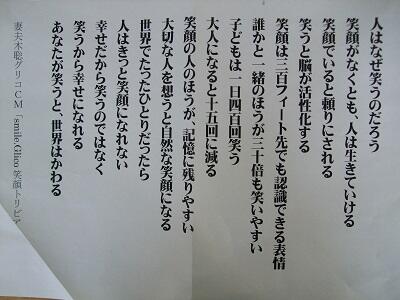 人はなぜ笑うのだろう
笑顔がなくとも、人は生きていける
笑顔でいると頼りにされる
笑うと脳が活性化する
笑顔は三百フィート先でも認識できる表情
誰かと一緒のほうが三十倍も笑いやすい
子どもは一日四百回笑う
大人になると十五回に減る
笑顔の人のほうが、記憶に残りやすい
大切な人を想うと自然な笑顔になる
世界でたったひとりだったら
人はきっと笑顔になれない
幸せだから笑うのではなく
笑うから幸せになれる
あなたが笑うと、世界はかわる
妻夫木聡グリコCM「smile.Glico 笑顔トリビア